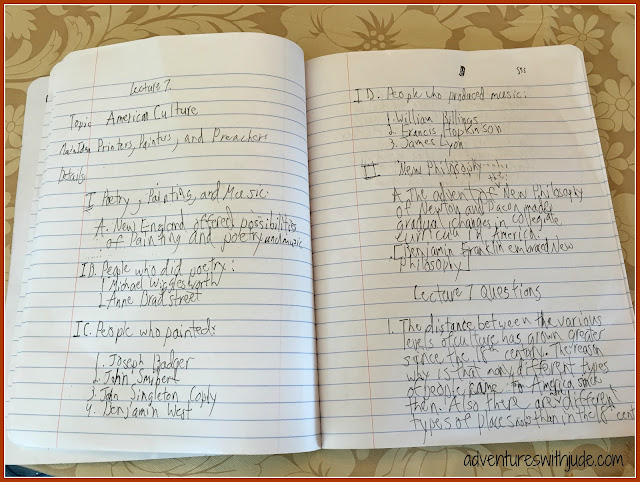 Lecture 7.
Topic American Culture
Main Idea Printers, Painters, and Preachers
Details
I Poetry, Painting, and Music:
A. New England offered possibilities
of Painting and poetry and music
IB. People who did poetry:
1 Michael Wigglesworth
2 Anne Bradstreet
IC. People who painted:
1. Joseph Badger
2. John Smybert
3. John Singleton Coply
4. Benjamin West
I D. People who produced music:
1. William Billings
2. Francis Hopkinson
3. James Lyon
II New Philosophy
A. The advent of New Philosophy
of Newton and Bacon made
gradual changes in collegiate
curricula in America.
[Benjamin Franklin embraced New
Philosophy]
Lecture 7 Questions
1. The distance between the various
levels of culture has grown greater
since the 18th century. The reason
why is that many different types
of people came to America since
then. Also there are different
types of places now than in the 18th cent
adventureswithjude.com